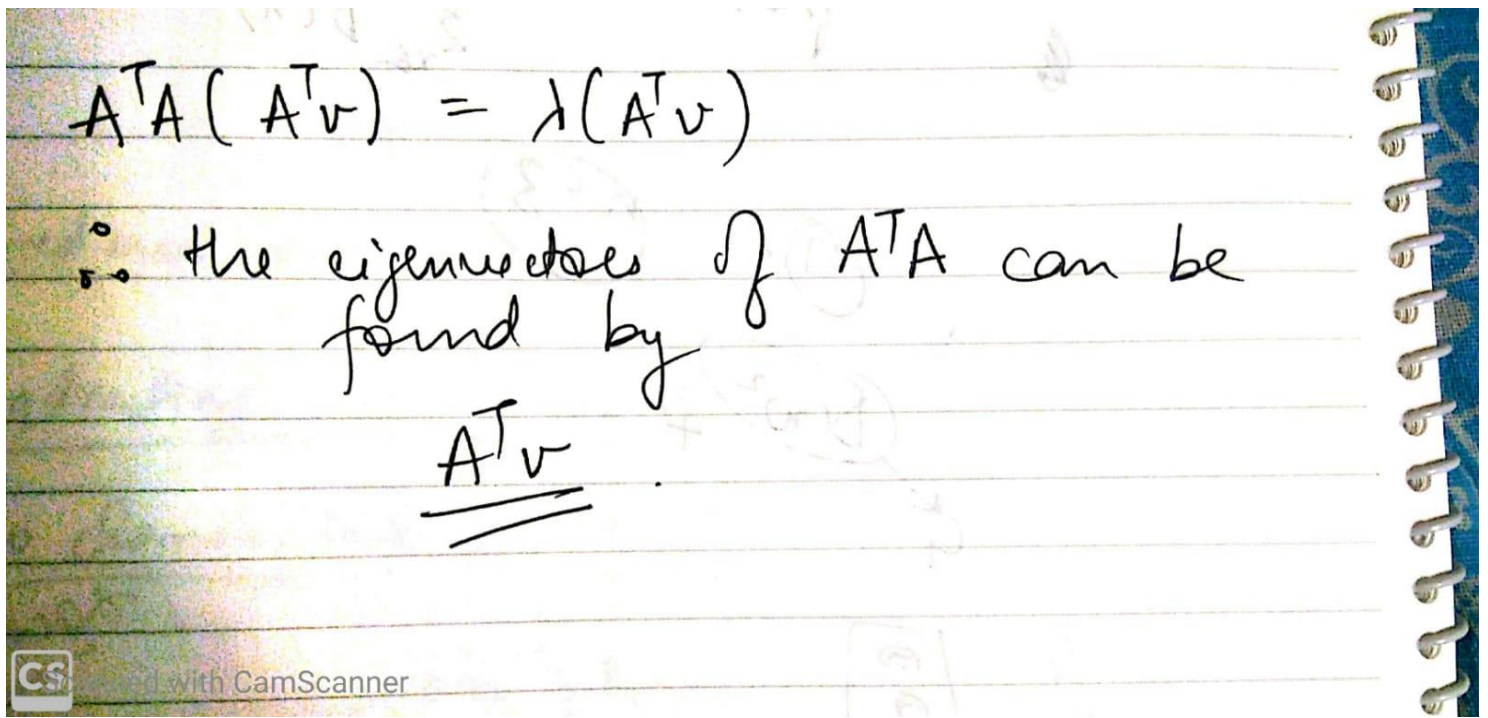 AᵀA(Aᵀv) = λ(Aᵀv)
∴ the eigenvectors of AᵀA can be
found by
Aᵀv.
CS
with CamScanner